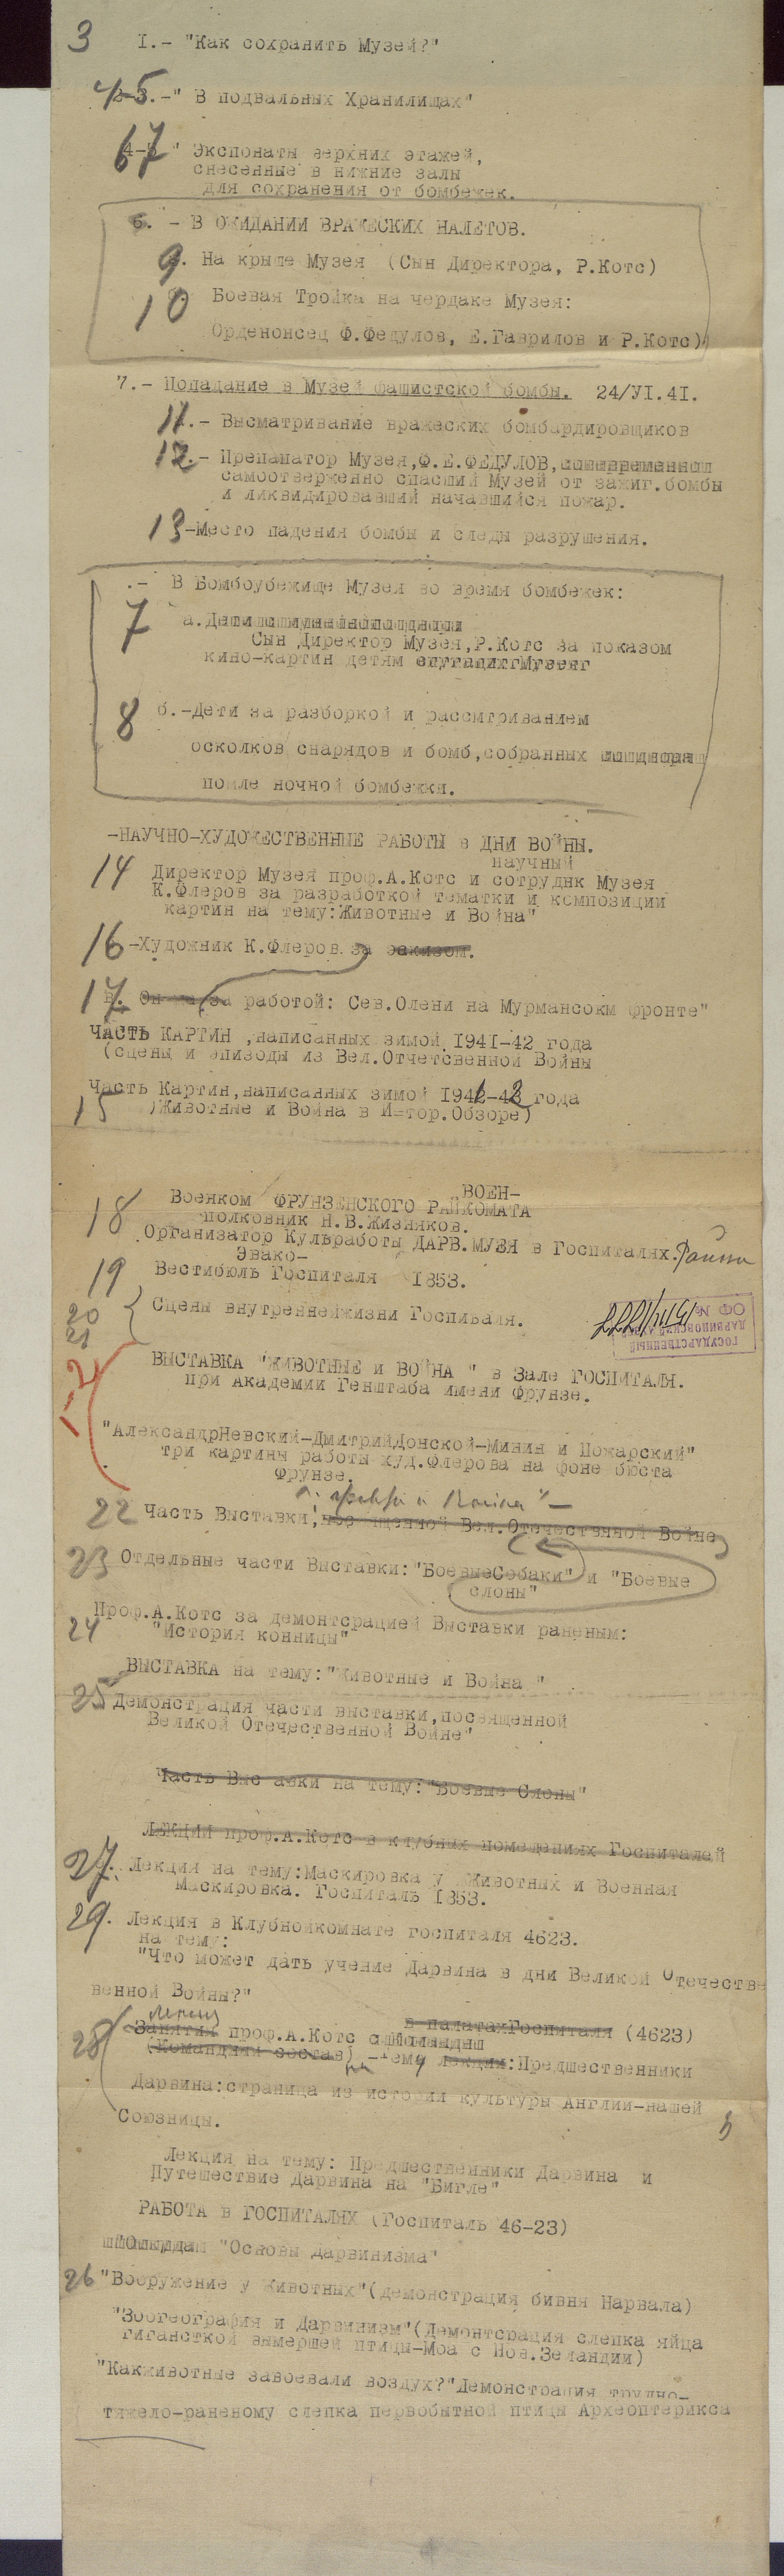 3 I.- "Как сохранить Музей?"
4-5.-" В подвальных Хранилищах"
67 " Экспонаты верхних этажей,
снесенные в нижние залы
для сохранения от бомбежек.
6. - В ОЖИДАНИИ ВРАЖЕСКИХ НАЛЕТОВ.
9. На крыше Музея (Сын Директора, Р.Котс)
10 Боевая Тройка на чердаке Музея:
Орденонсец Ф.Федулов, Е.Гаврилов и Р.Котс)
7.- Попадание в Музей фашистской бомбы. 24/УІ.4І.
11.- Высматривание вражеских бомбардировщиков
12.- Препанатор Музея,Ф.Е.ФЕДУЛОВ,
самоотверженно спасший Музей от зажиг.бомбы
и ликвидировавший начавшийся пожар.
13-Место падения бомбы и следы разрушения.
.- В Бомбоубежище Музея во время бомбежек:
7 а.
Сын Директор Музея,Р.Котс за показом
кино-картин детям
8 б.-Дети за разборкой и рассмтриванием
осколков снарядов и бомб,собранных
помле ночной бомбежки.
-НАУЧНО-ХУДОЖЕСТВЕННЫЕ РАБОТЫ в ДНИ ВОЙНЫ.
научный
14 Директор Музея проф.А.Котс и сотруднк Музея
К.Флеров за разработкой тематки и композиции
картин на тему:Животные и Война"
16 -Художник К.Флеров за эскизом.
17 в. работой: Сев.Олени на Мурмансокм фронте"
ЧАСТЬ КАРТИН ,написанных зимой І94І-42 года
(сцены и эпизоды из Вел.Отчетсвенной Войны
Часть Картин,написанных зимой 1941-42 года
15 )Животные и Война в Истор.Обзоре)
ВОЕН-
18 Военком ФРУНЗЕНСКОГО РАЙКОМАТА
полковник Н.В.Жизняков.
Организатор Кульработы ДАРВ.МУЗЯ в Госпиталях.Района
Эвако-
19 Вестибюль Госпиталя І853.
20 Сцены внутреннейжизни Госпиваля.
21
ГОСУДАРСТВЕННЫЙ
ДАРВИНОВСКИЙ
ОФ №
1-2 ВЫСТАВКА "ЖИВОТНЫЕ и ВОЙНА " в Зале ГОСПИТАЛЯ.
при Академии Генштаба имени Фрунзе.
"АлександрНевский-ДмитрийДонской-Минин и Пожарский"
три картины работы худ.Флерова на фоне бюста
Фрунзе.
22 Часть Выставки, посвященной Вел.Отечественной Войне
23 Отдельные части Выставки:"БоевыеСобаки" и "Боевые
слоны"
Проф.А.Котс за демонтсрацией Выставки раненым:
24 "История конницы"
ВЫСТАВКА на тему:"Животные и Война "
25 Демонстрация части выставки,посвященной
Великой Отечественной Войне"
Часть Выс авки на тему:"Боевые Слоны"
ЛЕКЦИИ проф.А.Котс в клубных помещениях Госпиталей
27. Лекция на тему:Маскировка у Животных и Военная
Маскировка. Госпиталь І853.
29. Лекция в Клубнойкомнате госпиталя 4623.
на тему:
"Что может дать учение Дарвина в дни Великой Отечестве
венной Войны?"
Лекция в палатахГоспиталя (4623)
28 Занятия проф.А.Котс с
(Командний состав) -Тему лекции:Предшественники
Дарвина:страница из истории культуры Англии-нашей
Союзницы.
Лекция на тему: Предшественники Дарвина и
Путешествие Дарвина на "Бигле"
РАБОТА в ГОСПИТАЛЯХ (Госпиталь 46-23)
"Основы дарвинизма"
26 "Вооружение у Животных"(демонстрация бивня Нарвала)
"Зоогеография и Дарвинизм"(Демонтсрация слепка яйца
гигансткой вымершей птицы-Моа с Нов.Зеландии)
"Какживотные завоевали воздух?"Демонстрация трудно-
тяжело-раненому слепка первобытной птицы Археоптерикса